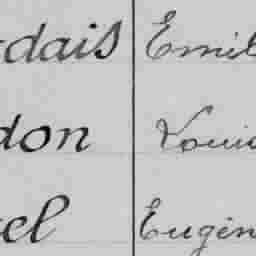 dais Emil
don Louis
el Eugen